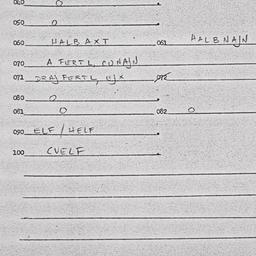 040 O
050 O
060 HALB AXT 061 HALB NAJN
070 A FERTL, CU NAJN
071 DRAJ FERTL, 072
080 O
081 O 082 O
090 ELF / HELF
100 CVELF